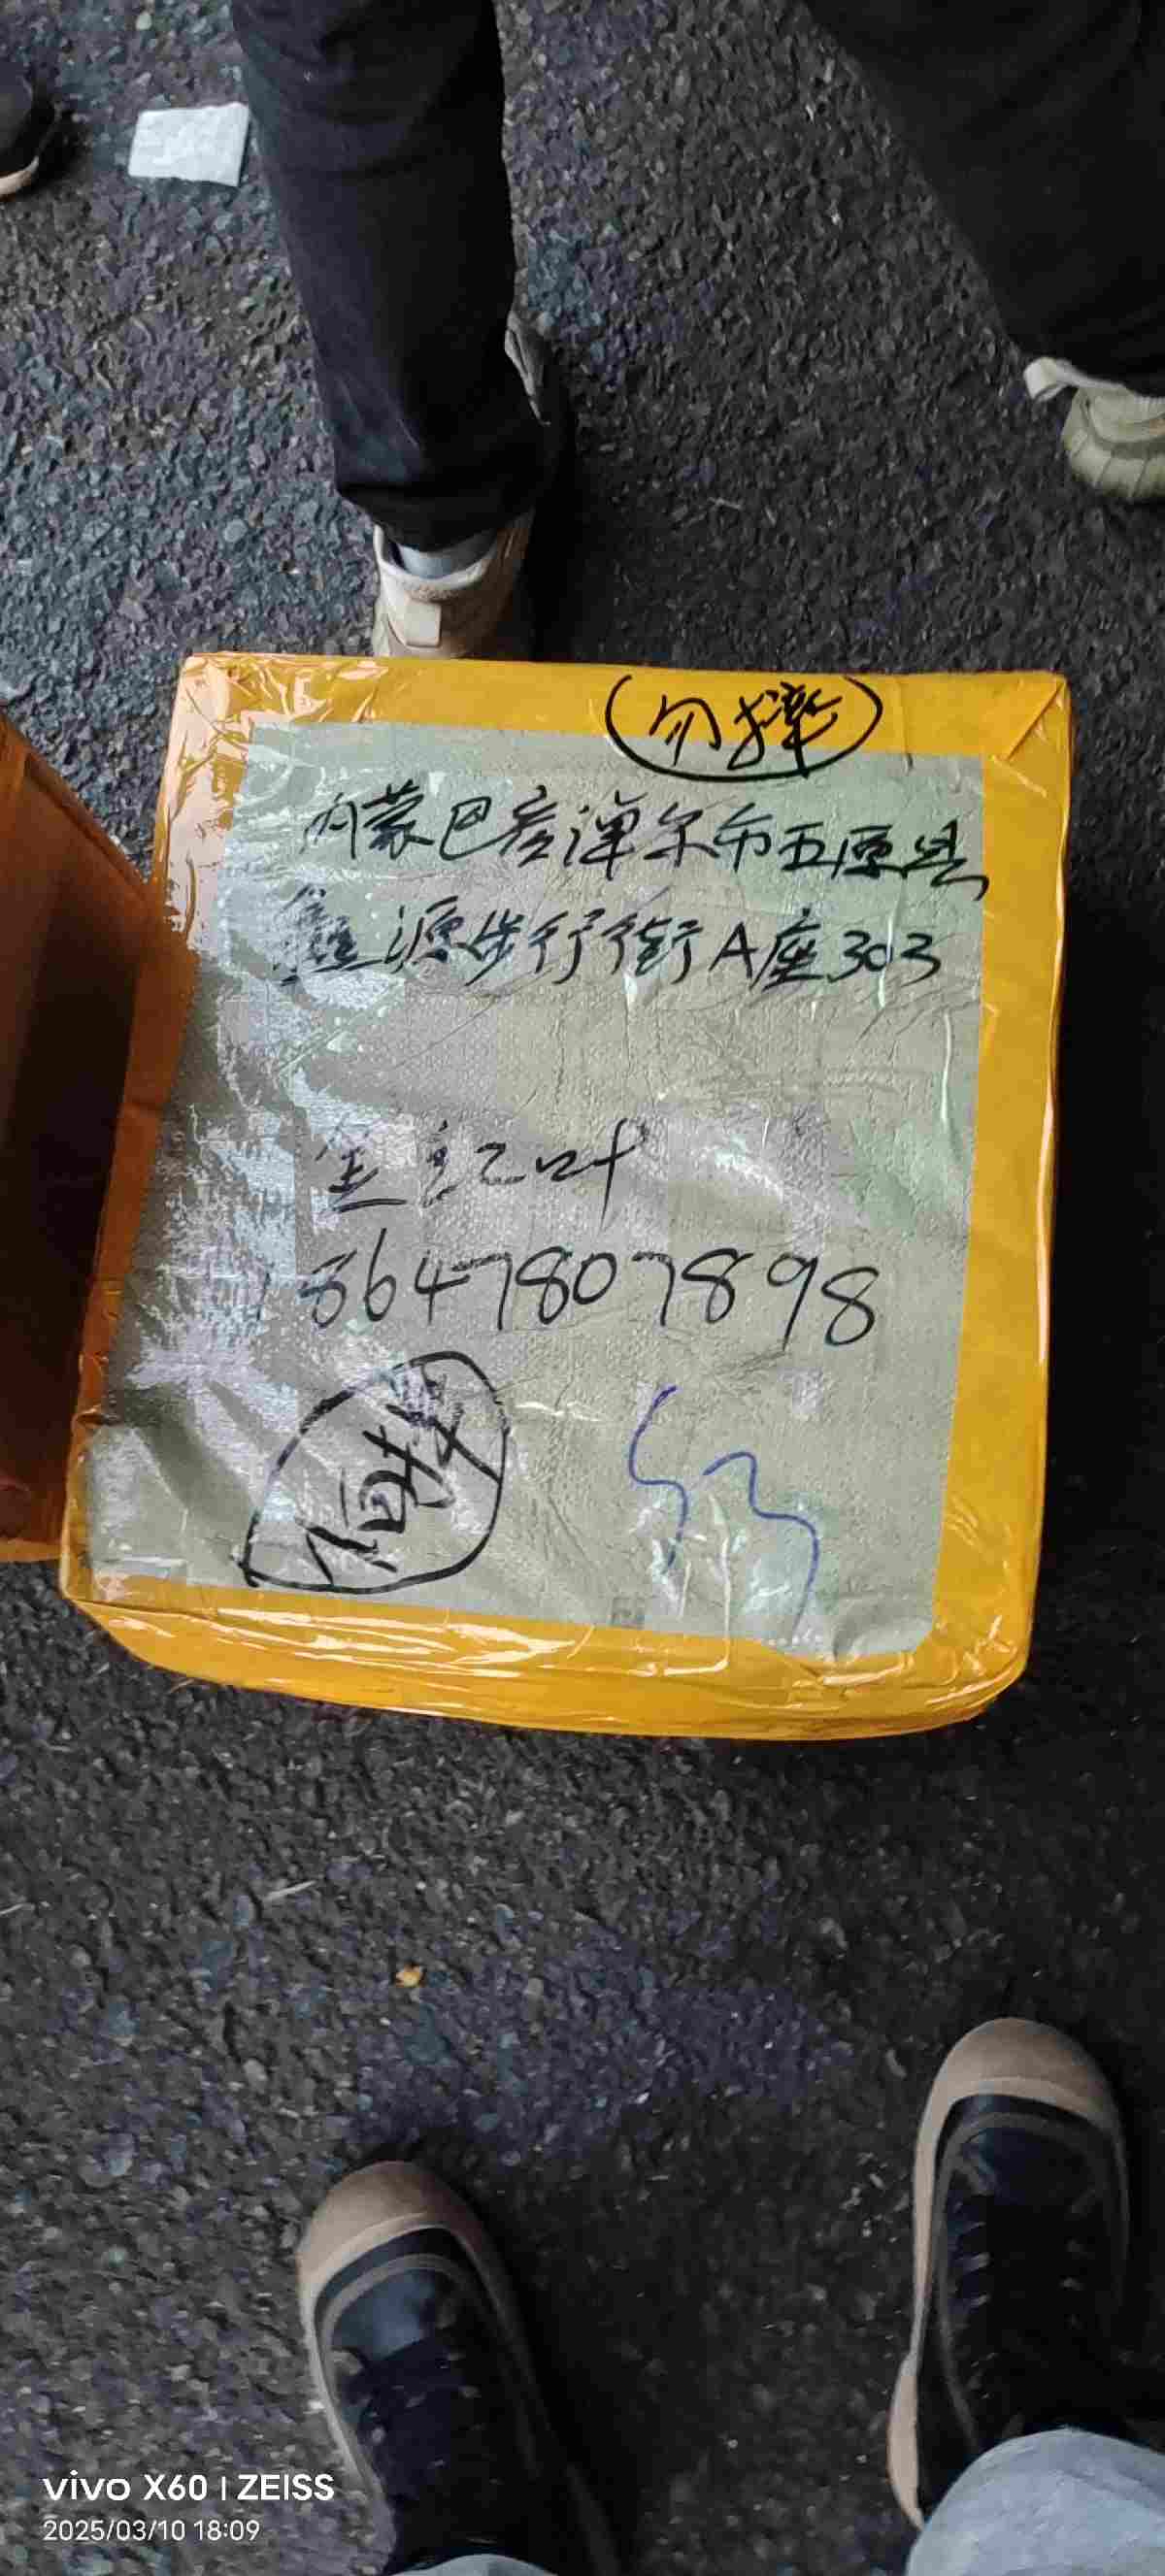 勿摔
内蒙巴彦淖尔市五原县
鑫源步行街A座303
红叶
18647807898
vivo X60 | ZEISS
2025/03/10 18:09